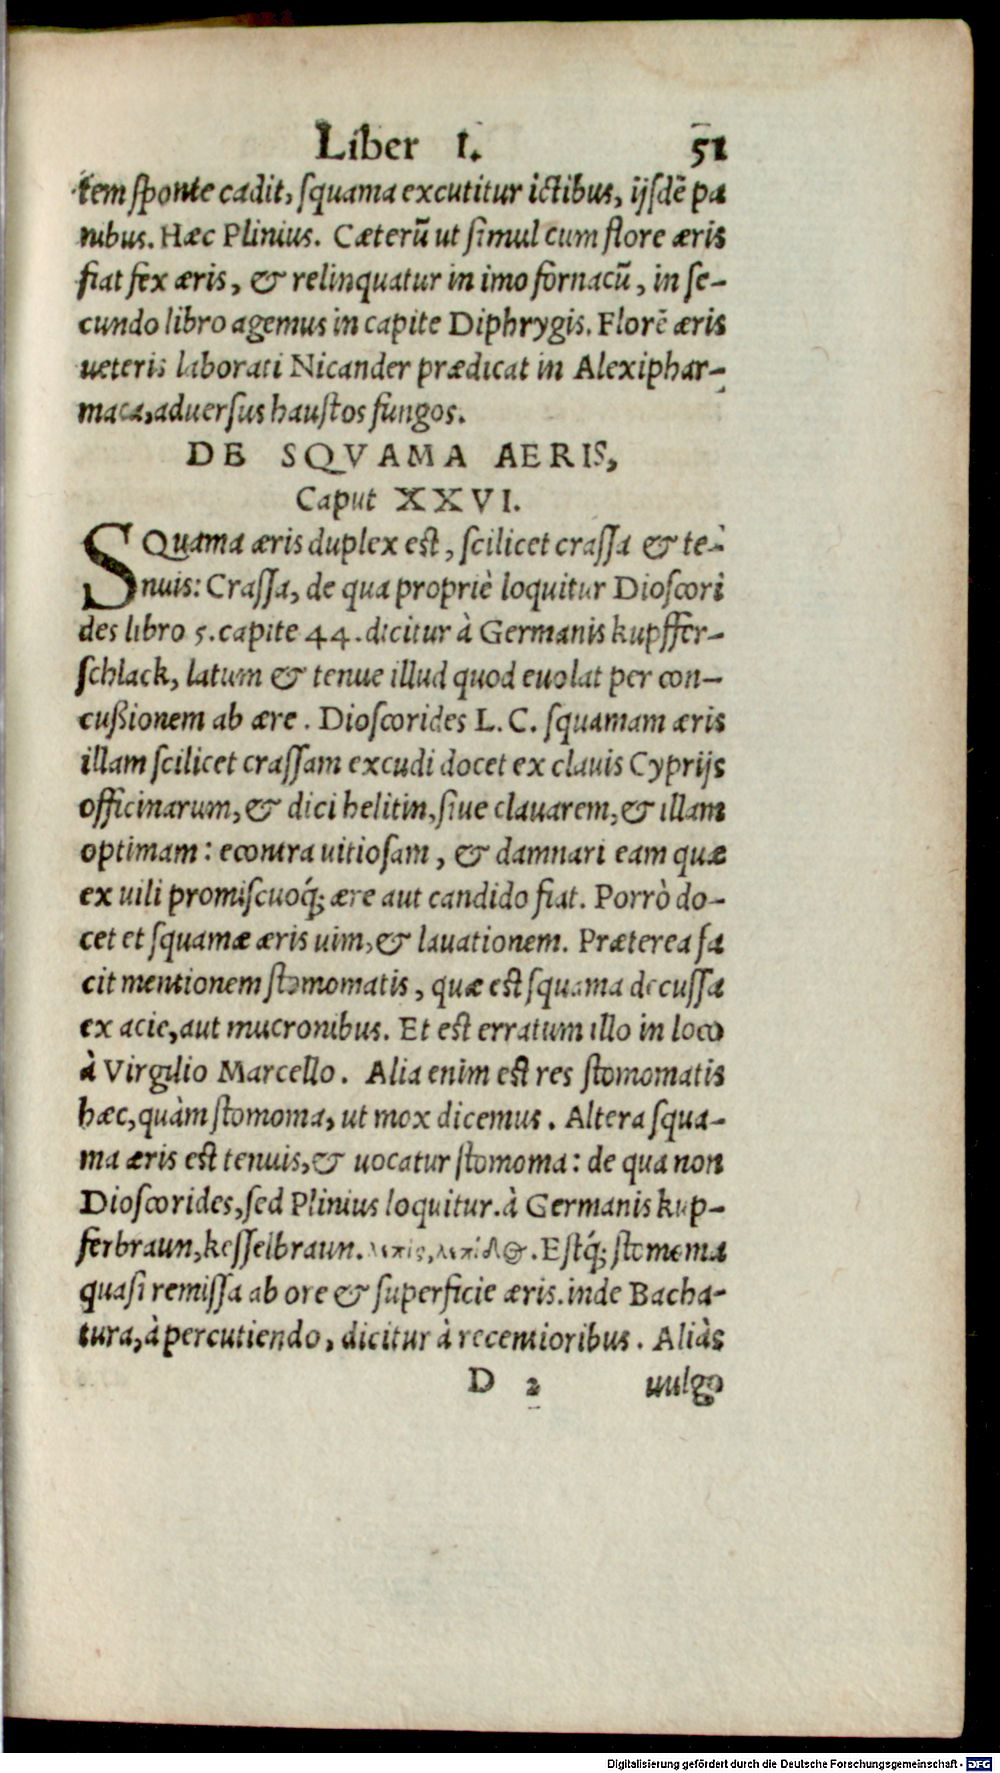 Liber I. 51
tem sponte cadit, squama excutitur ictibus, ijsdē pa
nibus. Hæc Plinius. Cæterū ut simul cum flore æris
fiat fex æris, & relinquatur in imo fornacū, in se-
cundo libro agemus in capite Diphrygis. Florē æris
ueteris laborati Nicander prædicat in Alexiphar-
maca, aduersus haustos fungos.
DE SQVAMA AERIS,
Caput XXVI.
SQuama æris duplex est, scilicet crassa & te-
nuis: Crassa, de qua propriè loquitur Dioscori
des libro 5. capite 44. dicitur à Germanis kupffer-
schlack, latum & tenue illud quod euolat per con-
cußionem ab ære. Dioscorides L. C. squamam æris
illam scilicet crassam excudi docet ex clauis Cyprijs
officinarum, & dici helitin, siue clauarem, & illam
optimam: econtra uitiosam, & damnari eam quæ
ex uili promiscuoq́; ære aut candido fiat. Porrò do-
cet et squamæ æris uim, & lauationem. Præterea fa
cit mentionem stomomatis, quæ est squama decussa
ex acie, aut mucronibus. Et est erratum illo in loco
à Virgilio Marcello. Alia enim est res stomomatis
hæc, quàm stomoma, ut mox dicemus. Altera squa-
ma æris est tenuis, & uocatur stomoma: de qua non
Dioscorides, sed Plinius loquitur. à Germanis kup-
ferbraun, kesselbraun. Estq́; stomoma
quasi remissa ab ore & superficie æris. inde Bacha-
tura, à percutiendo, dicitur à recentioribus. Aliàs
D 2 uulgo
Digitalisierung gefördert durch die Deutsche Forschungsgemeinschaft - DFG